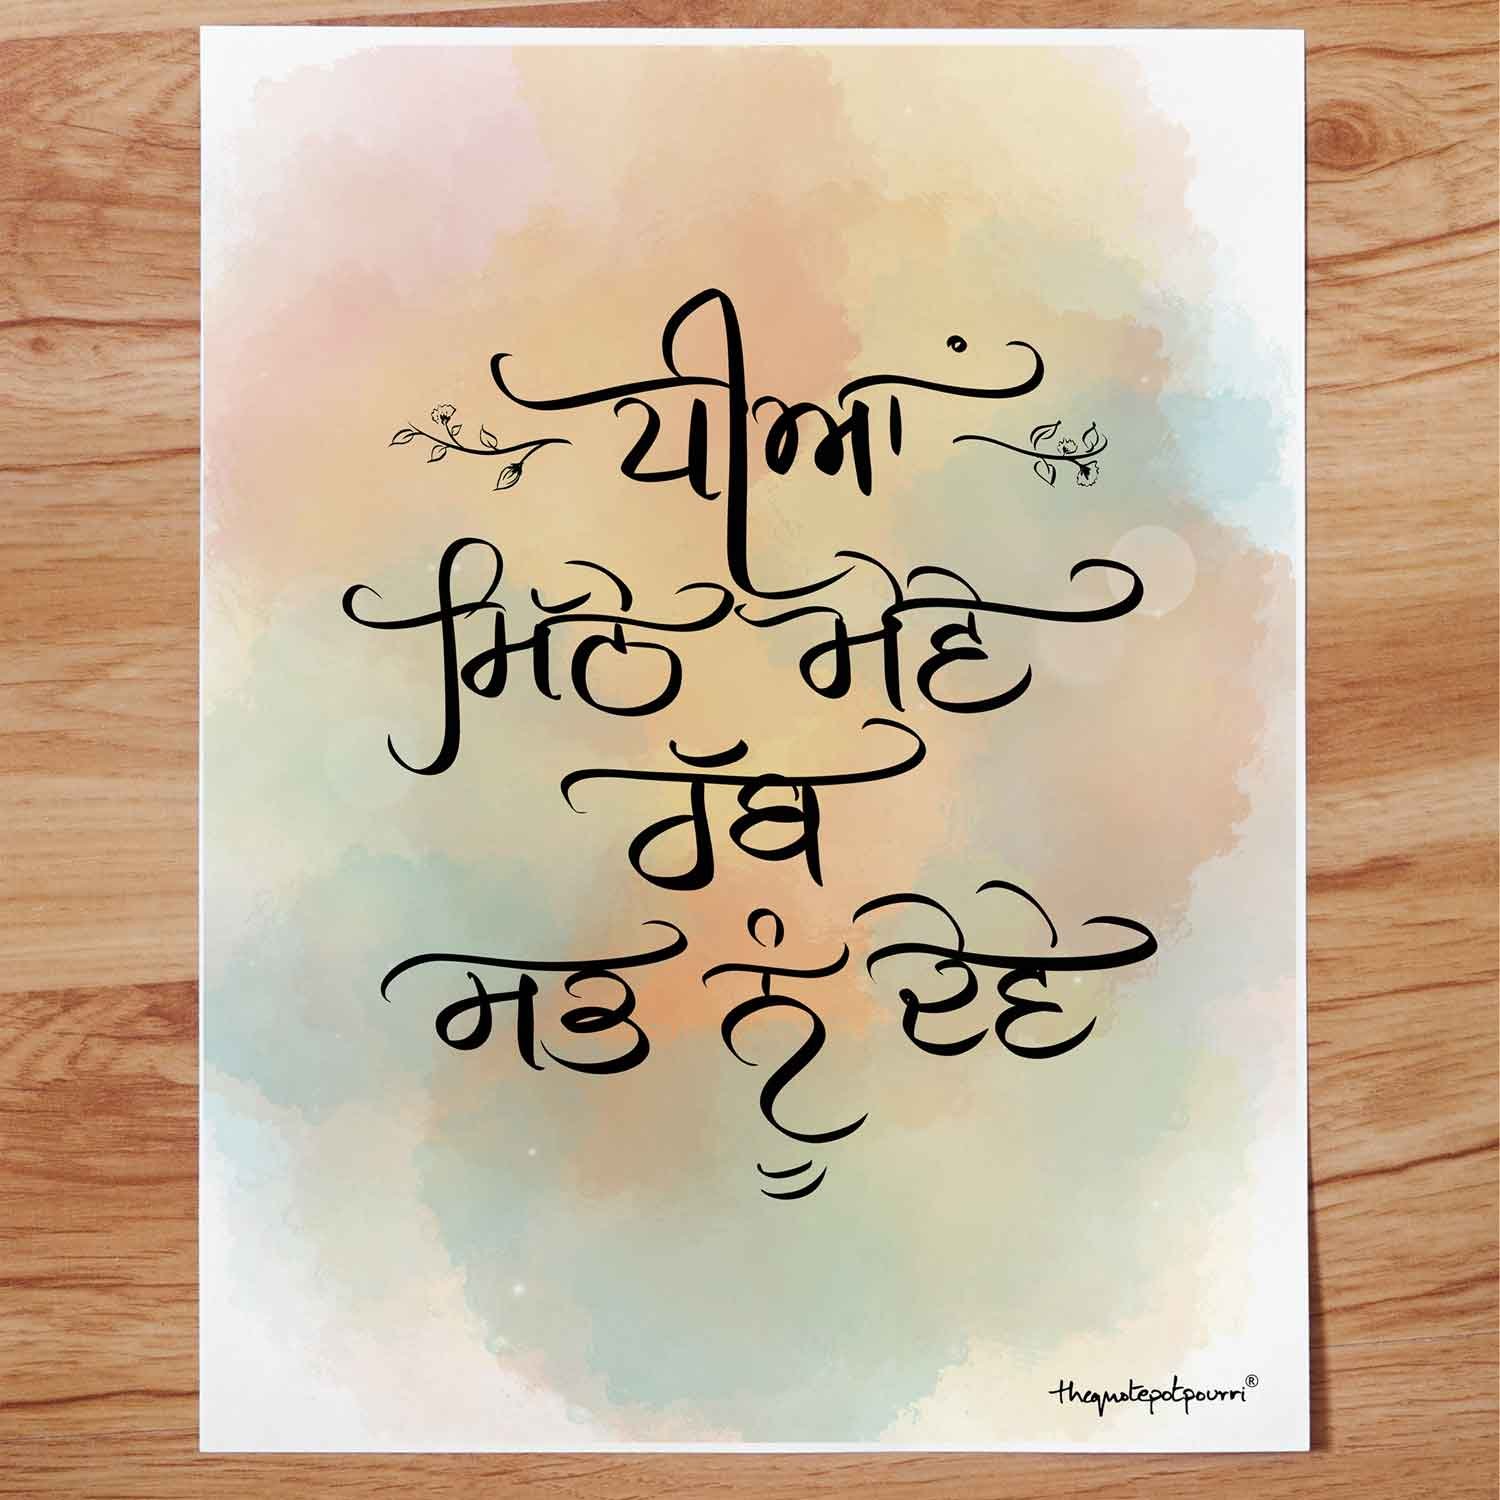 ਧੀਆਂ
ਮਿੱਠੇ ਮੇਵੇ
ਰੱਬ
ਸਭ ਨੂੰ ਦੇਵੇ
thequotepotpourri®